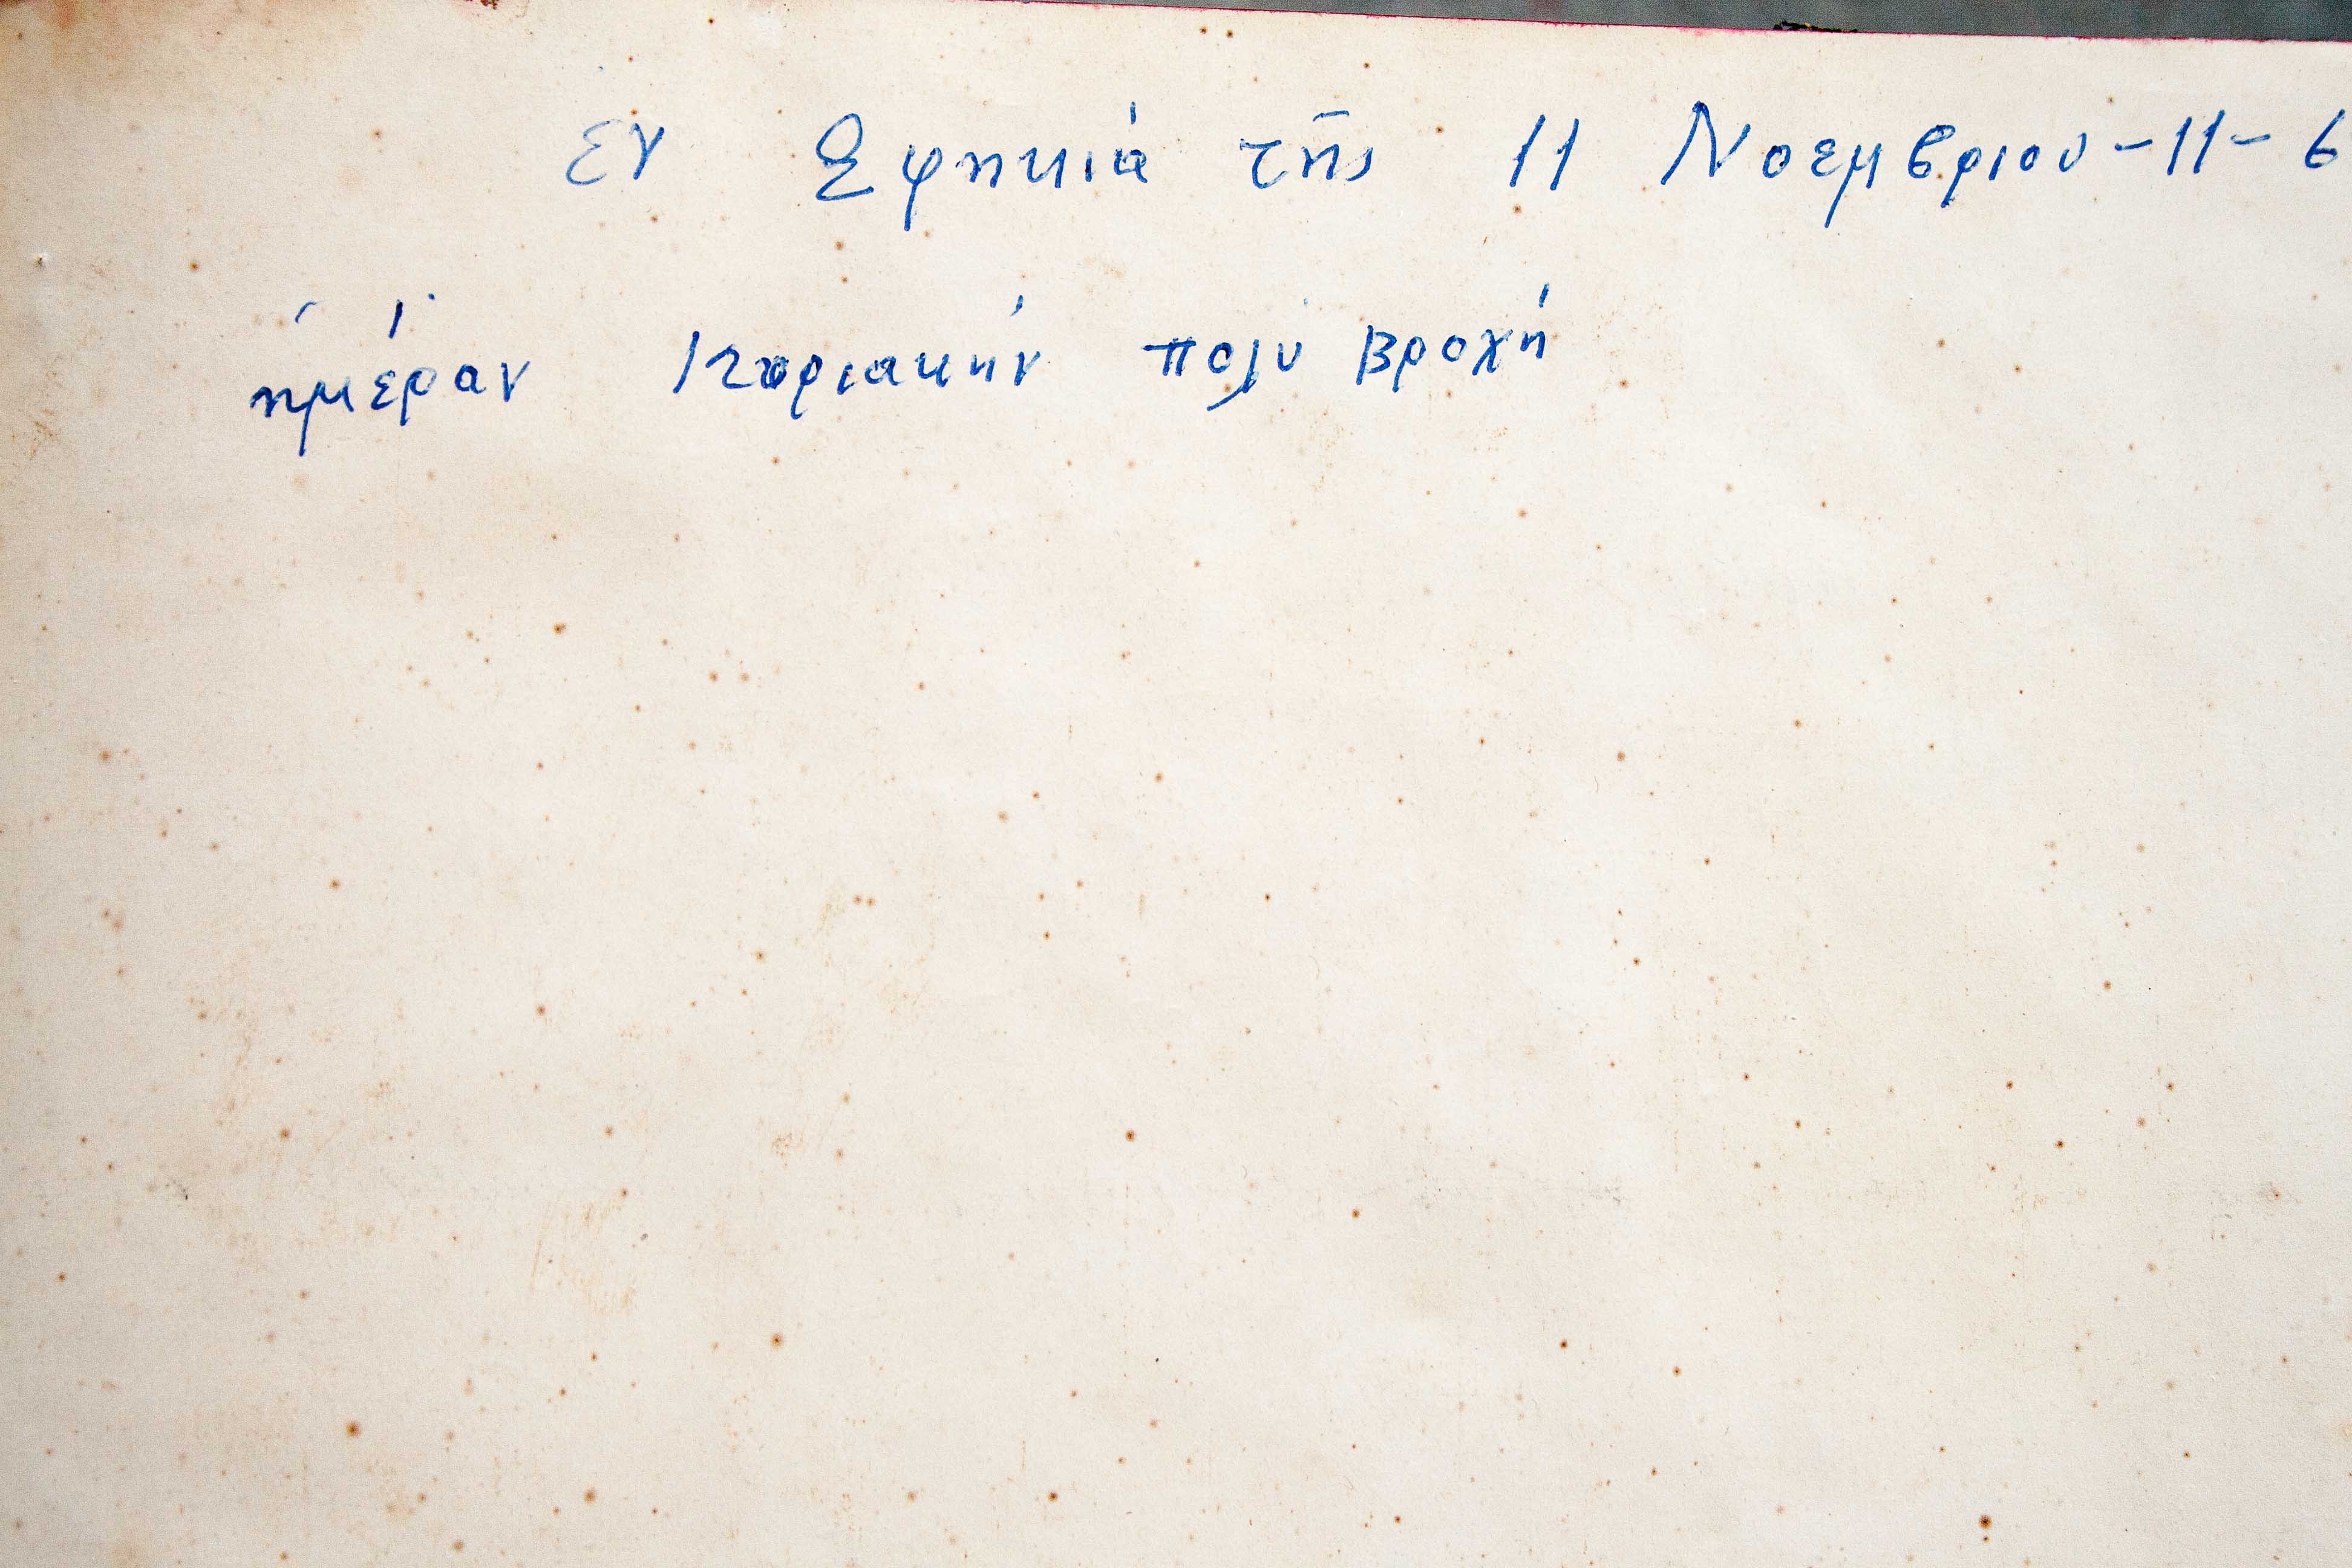 εν Σφηκιά τῆς 11 Νοεμβριου-11-6
ημέραν Κυριακήν πολυ Βροχή